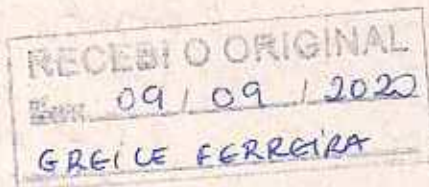 RECEBI O ORIGINAL
Em: 09 / 09 / 2020
GREICE FERREIRA